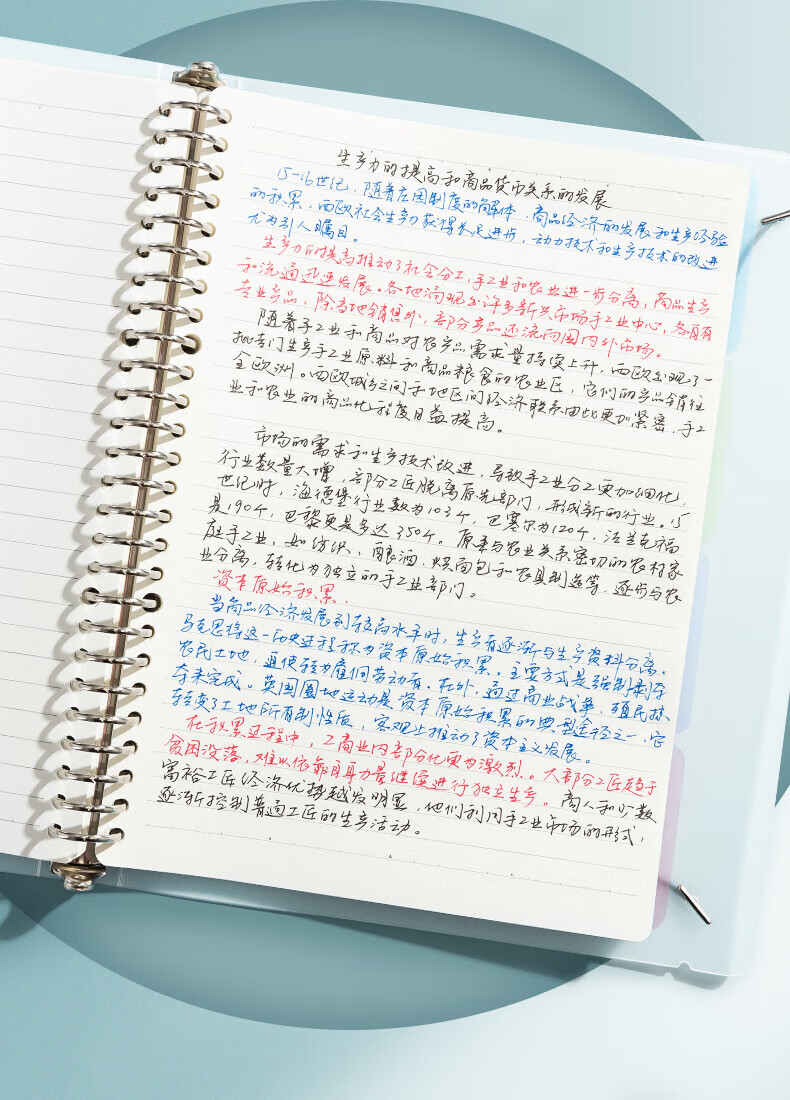 生产力的提高和商品货币关系的发展
15-16世纪，随着庄园制度的解体，商品经济的发展和生产经验
的积累，西欧社会生产力获得长足进步，动力技术和生产技术的改进
尤为引人瞩目。
生产力的提高推动了社会分工，手工业和农业进一步分离，商品生产
和流通迅速发展。各地涌现出许多新兴市场手工业中心，各自有
专业产品，除当地销售外，部分产品还流向国内外市场。
随着手工业和商品对农产品需求量持续上升，西欧出现了一
批专门生产手工业原料和商品粮食的农业区，它们的产品销往
全欧洲。西欧城乡之间和地区间经济联系由此更加紧密，手工
业和农业的商品化程度日益提高。
市场的需求和生产技术改进，导致手工业分工更加细化，
行业数量大增，部分工匠脱离原先部门，形成新的行业。15
世纪时，海德堡行业数为103个，巴塞尔为120个，法兰克福
是190个，巴黎更是多达350个。原来与农业关系密切的农村家
庭手工业，如纺织、酿酒、烘面包和农具制造等，逐步与农
业分离，转化为独立的手工业部门。
资本原始积累.
当商品经济发展到较高水平时，生产者逐渐与生产资料分离。
马克思将这一历史进程称为资本原始积累。主要方式是强制剥夺
农民土地，迫使转为雇佣劳动者。在外，通过商业战争，殖民掠
夺来完成。英国圈地运动是资本原始积累的典型途径之一，它
转变了土地所有制性质，客观上推动了资本主义发展。
在积累过程中，工商业内部分化更为激烈。大部分工匠趋于
贫困没落，难以依靠自身力量继续进行独立生产。商人和少数
富裕工匠经济优势越发明显，他们利用手工业市场的形式，
逐渐控制普通工匠的生产活动。